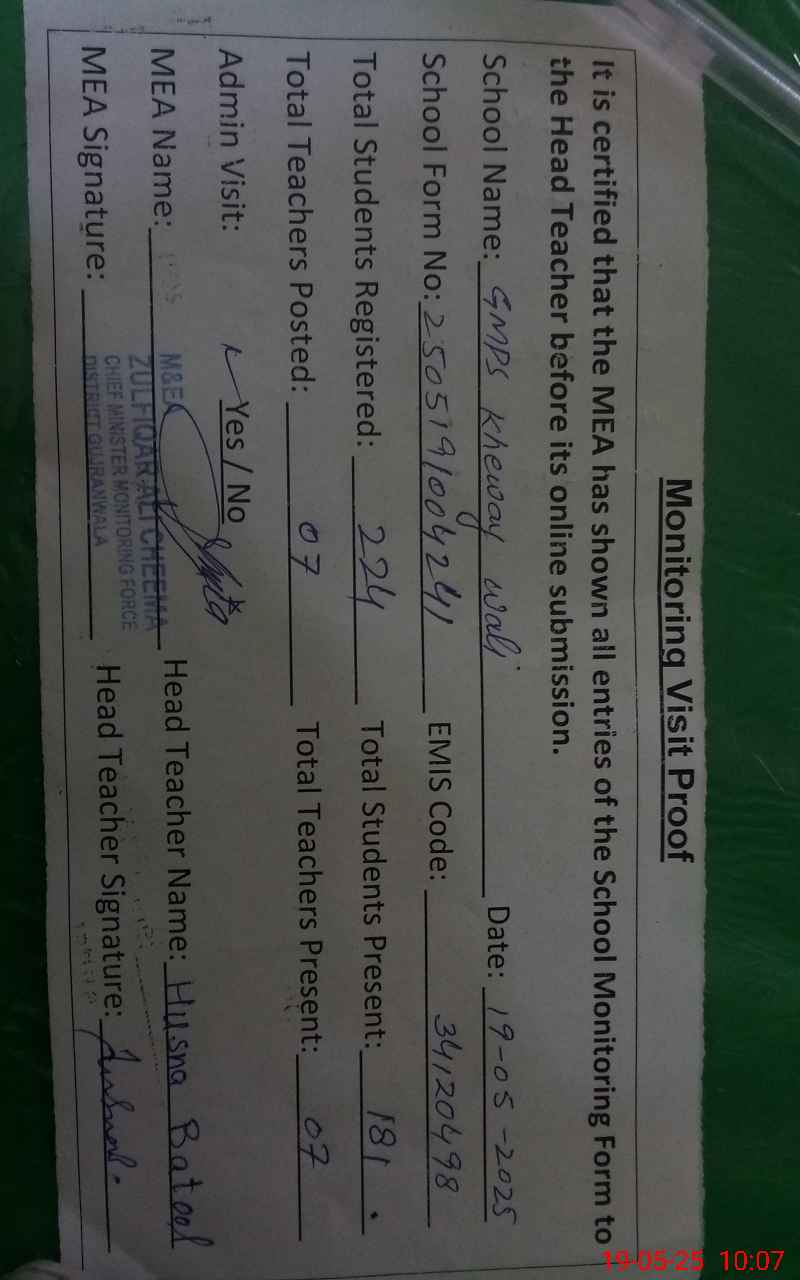 Monitoring Visit Proof
It is certified that the MEA has shown all entries of the School Monitoring Form to
the Head Teacher before its online submission.
School Name: GMPS Kheway Wali Date: 19-05-2025
School Form No: 2505191004241 EMIS Code: 34120498
Total Students Registered: 224 Total Students Present: 181
Total Teachers Posted: 07 Total Teachers Present: 07
Admin Visit: ✓ Yes / No
MEA Name: Head Teacher Name: Husna Batool
MEA Signature: Head Teacher Signature:
M&EA
ZULFIQAR ALI CHEEMA
CHIEF MINISTER MONITORING FORCE
DISTRICT GUJRANWALA
19-05-25 10:07